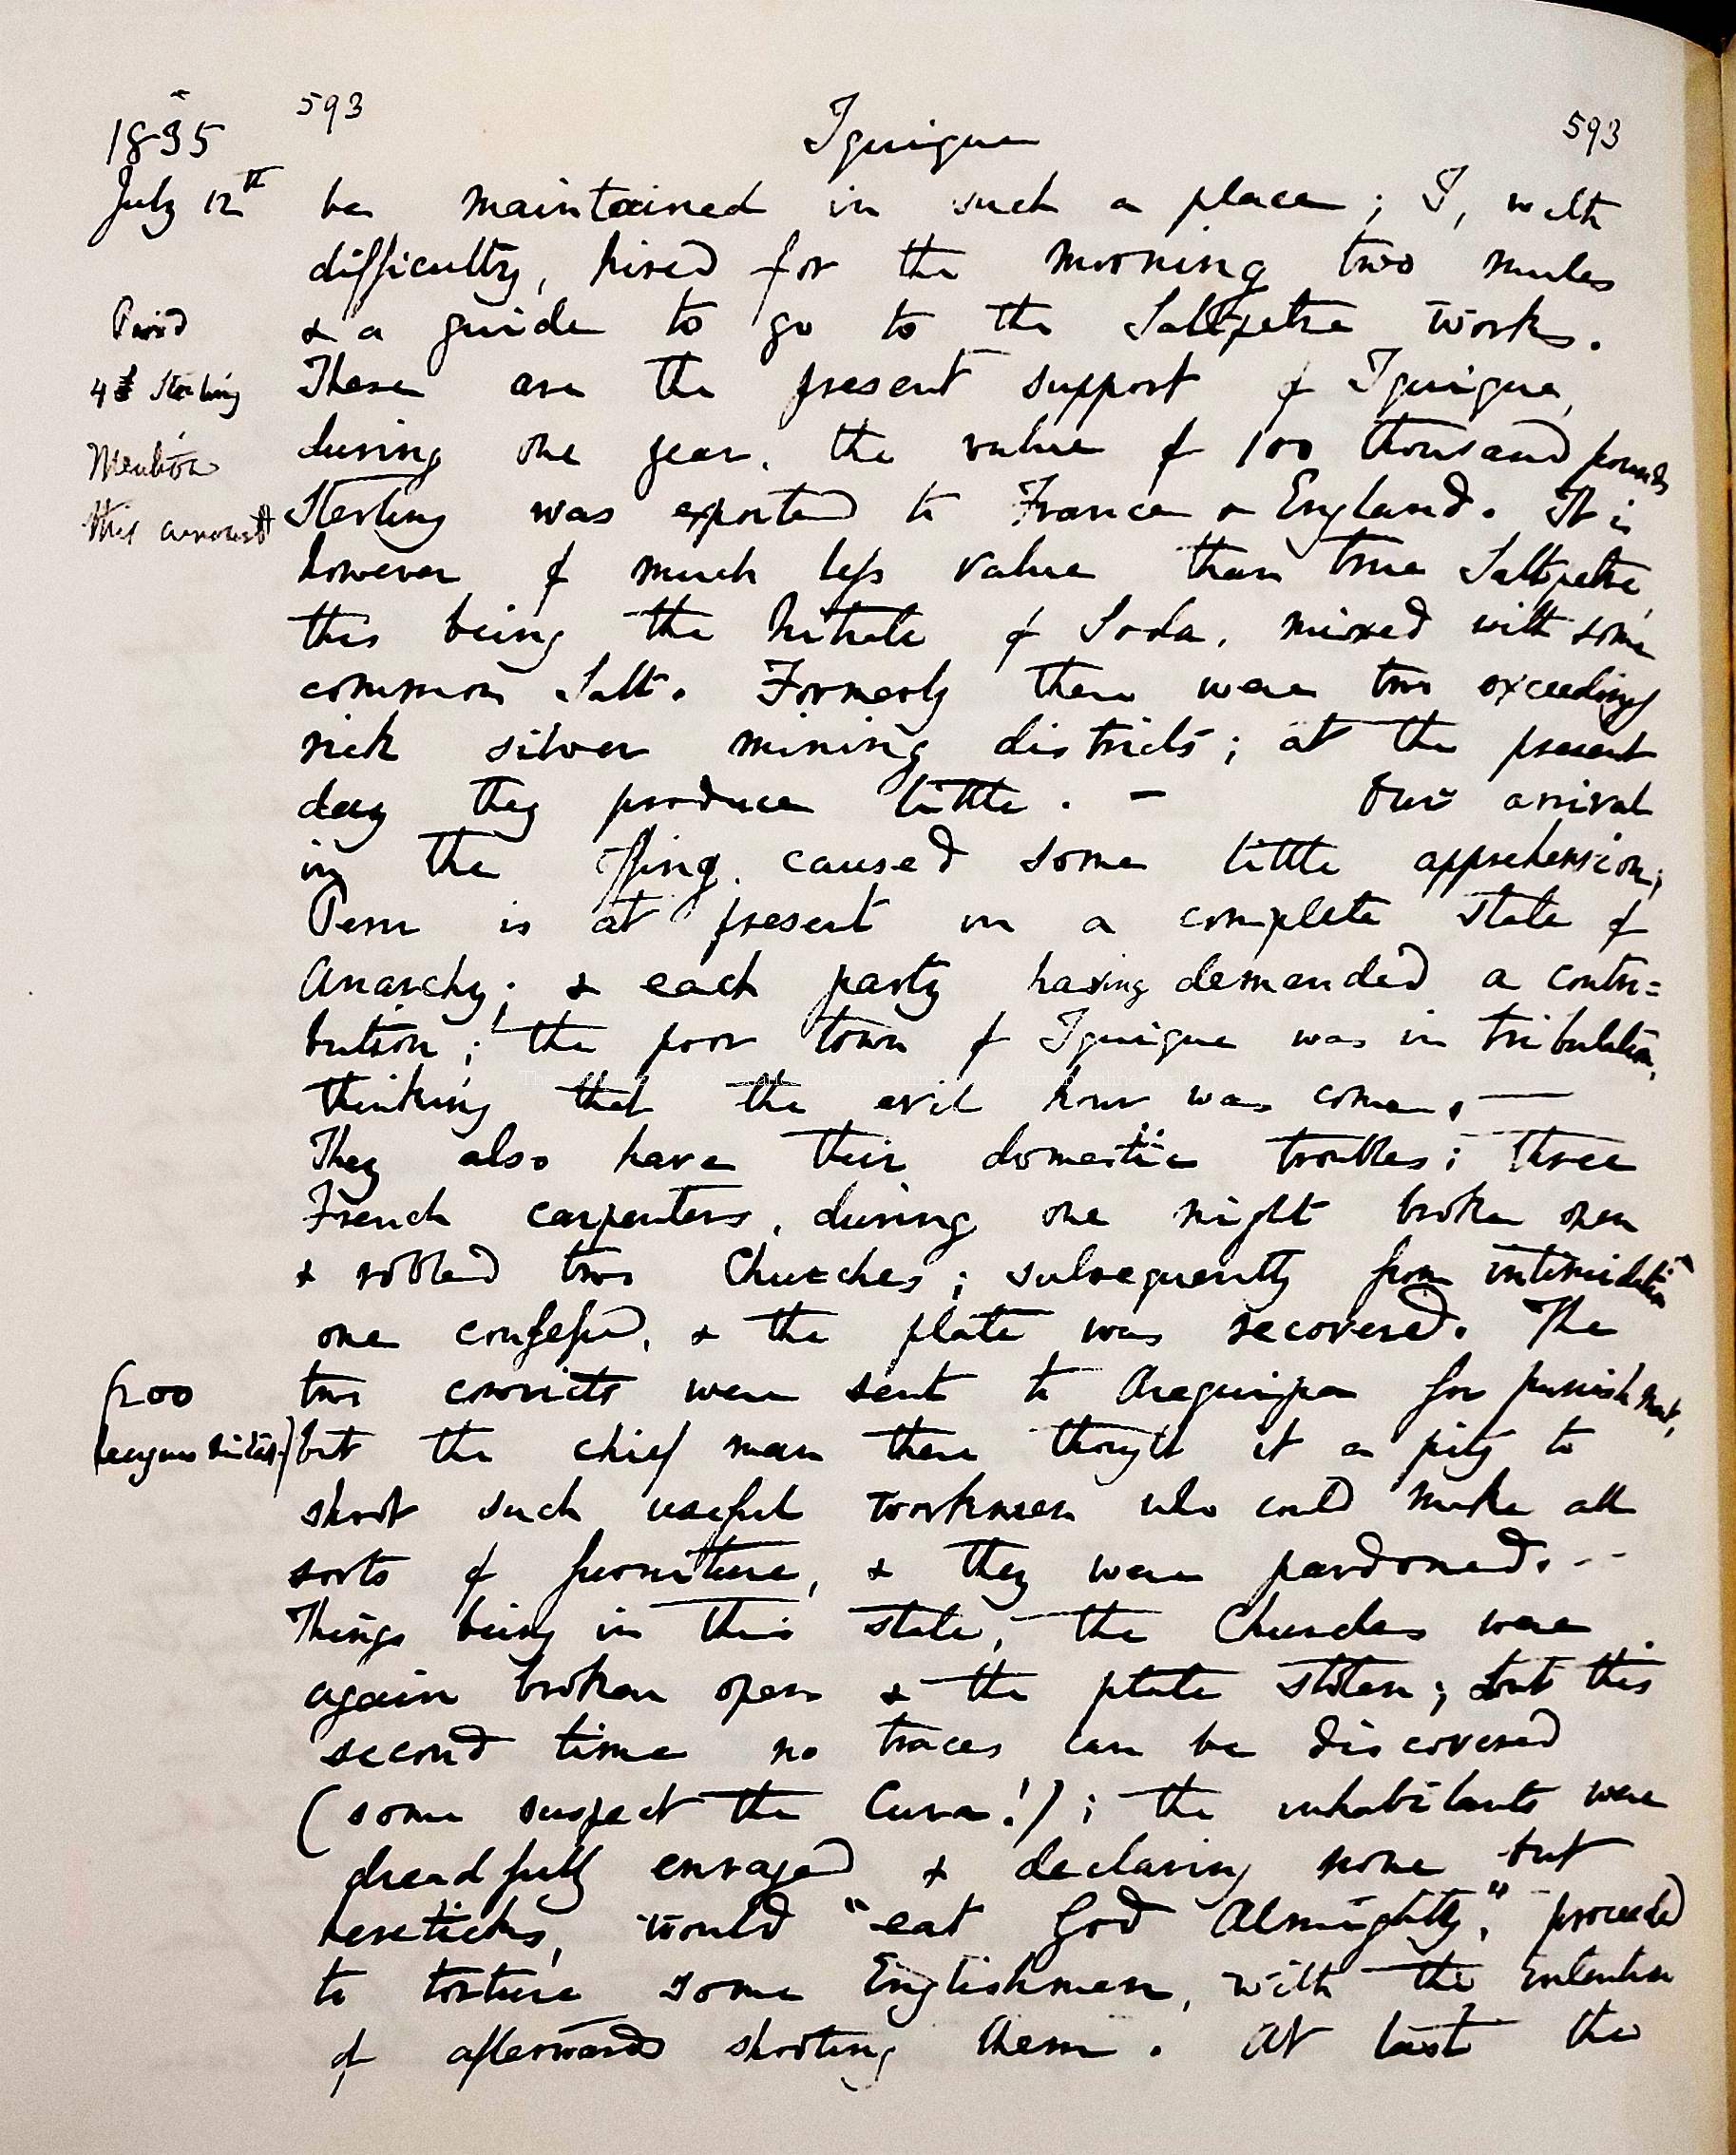 593 Iquique 593
1835
July 12th be maintained in such a place; I, with
difficulty, hired for the morning two mules
Paid & a guide to go to the Saltpetre works.
4£ Sterling These are the present support of Iquique,
Mention during one year, the value of 100 thousand pounds
this amount Sterling was exported to France & England. It is
however of much less value than true Saltpetre,
this being the Nitrate of Soda, mixed with some
common Salt. Formerly there were two exceeding
rich silver mining districts; at the present
day they produce little. — Our arrival
in the offing, caused some little apprehension;
Peru is at present in a complete state of
Anarchy; & each party having demanded a contri=
bution; the poor town of Iquique was in tribulation,
thinking that the evil hour was come. —
They also have their domestic troubles; three
French carpenters, during one night broke open
& robbed two Churches; subsequently from intimidation
one confessed, & the plate was recovered. The
two convicts were sent to Arequipa for punishment,
but the chief man there thought it a pity to
shoot such useful workmen who could make all
sorts of furniture, & they were pardoned. --
Things being in this state, the Churches were
again broken open & the plate stolen; but this
second time no traces can be discovered
(some suspect the Cura!); the inhabitants were
dreadfully enraged & declaring none but
hereticks, would "eat God Almighty," proceeded
to torture some Englishmen, with the intention
of afterwards shooting them. At last the